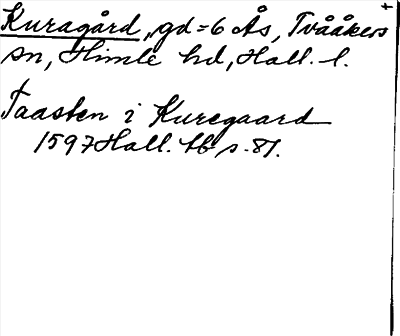 Kuragård, gd = 6 Ås, Tvååkers
sn, Himle hd, Hall. l.
Taasten i Kuregaard
1597 Hall. tb s. 81.